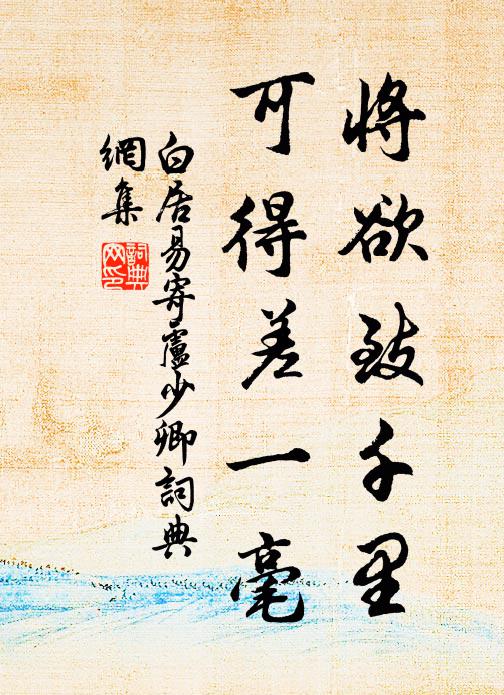 将欲致千里
可得差一毫
白居易寄盧少卿詞典
網集
詞典
网印